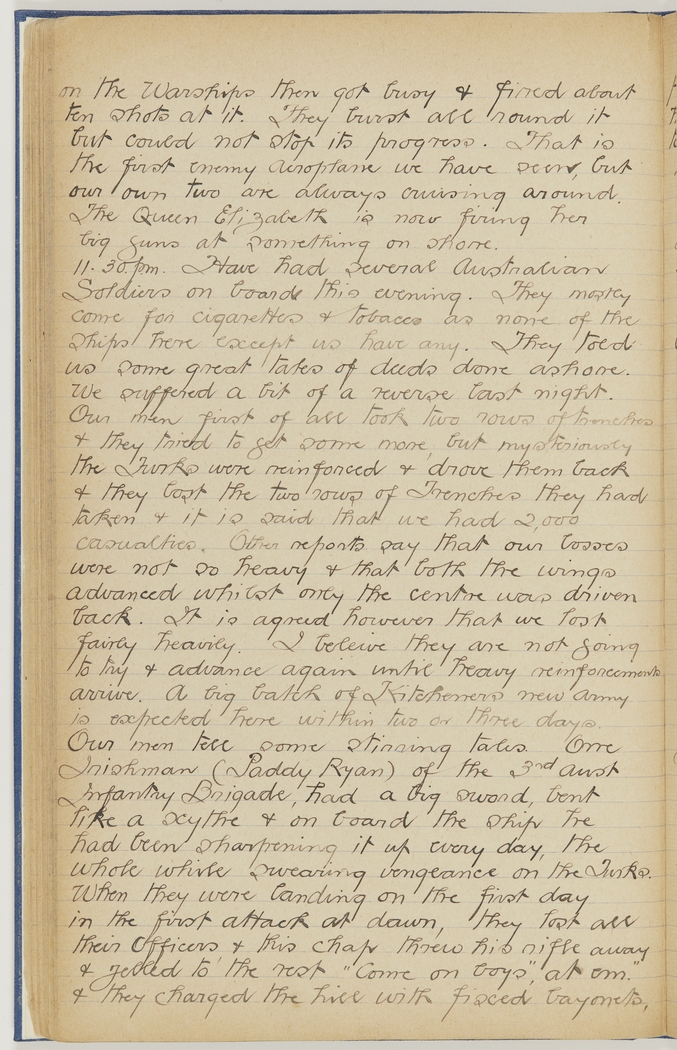 on the Warships then got busy & fired about
ten shots at it. They burst all round it
but could not stop its progress. That is
the first enemy Aeroplane we have seen, but
our own two are always cruising around.
The Queen Elizabeth is now firing her
big guns at something on shore.
11.30 pm. Have had several Australian
Soldiers on board this evening. They mostly
come for cigarettes & tobacco as none of the
ships here except us have any. They told
us some great tales of deeds done ashore.
We suffered a bit of a reverse last night.
Our men first of all took two rows of trenches
& they tried to get some more, but mysteriously
the Turks were reinforced & drove them back
& they lost the two rows of Trenches they had
taken & it is said that we had 2,000
casualties. Other reports say that our losses
were not so heavy & that both the wings
advanced whilst only the centre was driven
back. It is agreed however that we lost
fairly heavily. I beleive they are not going
to try & advance again until heavy reinforcements
arrive. A big batch of Kitcheners new army
is expected here within two or three days.
Our men tell some stirring tales. One
Irishman (Paddy Ryan) of the 3rd Aust
Infantry Brigade, had a big sword, bent
like a scythe & on board the ship he
had been sharpening it up every day, the
whole while swearing vengeance on the Turks.
When they were landing on the first day
in the first attack at dawn, they lost all
their Officers & this chap threw his rifle away
& yelled to the rest "Come on boys", at em."
& they charged the hill with fixed bayonets,